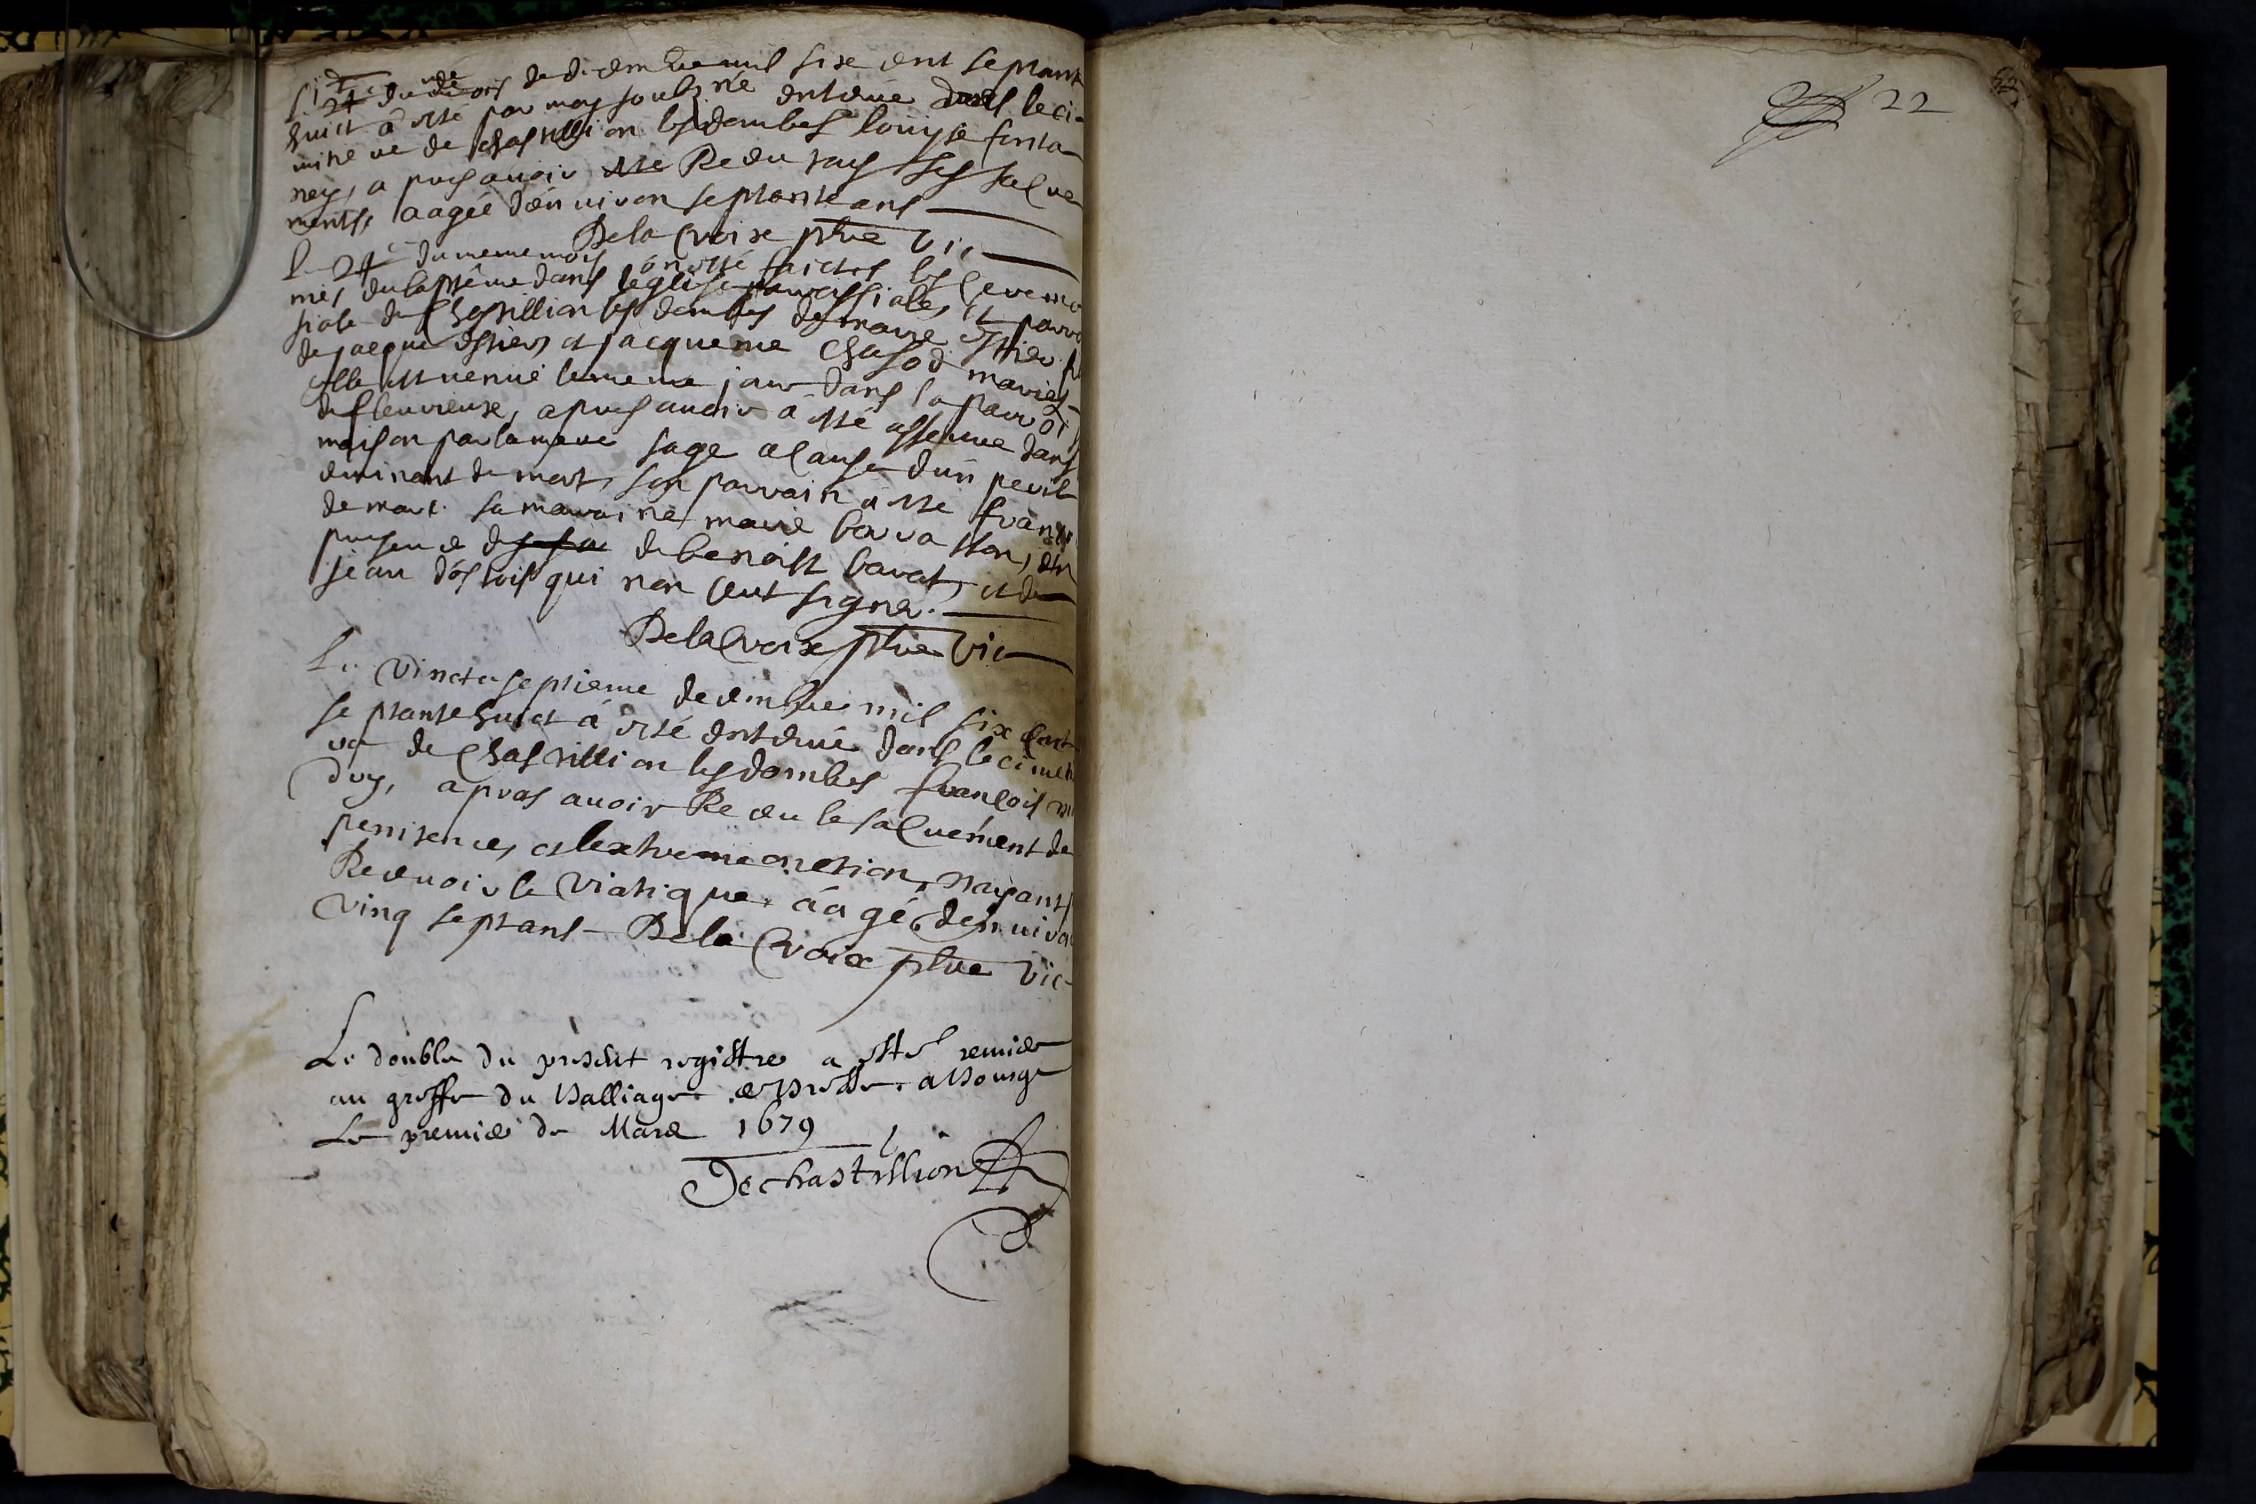 Le 24e du mois de decembre mil sixcent septante
huict à esté par moy soubsiné enterree dans le ci-
mitieve de chastillion les dombes louyse fonta
ney, apres avoir esté Receu tous ses sacre
ments, aagée d'environ septante ans
De la Croix pbre vic
le 24e du meme mois on esté faictes les ceremo
nies du baptême dans l'eglise parrossiale, et parro
siale de Chastillion les dombes de marie
de jacque et jacqueme mariés
elle est venue le meme jour dans la parroi
de fleurieux, apres avoir a esté dans
maison par la mere sage a cause d'un peril
eminant de mort, son parrain a esté franço
de mort. sa marraine marie en
presence de de benoist et de
jean qui n'on sceut signer.
De la Croix pbre vic
Le vincte septieme decembre mil six cent
septante huict à esté enterré dans le cimet
ve de Chastillion les dombes françois
duy, apres avoir Receu le sacrement de
penitence, et lextreme onction, nayant p
Recevoir le viatique, áagé denviro
vinq sept ans - De la Croix pbre vic
Le double du present registre a esté remis
au greffe du Balliage de Bresse a Bourg
Le premier de Mars 1679
De chastillion
22